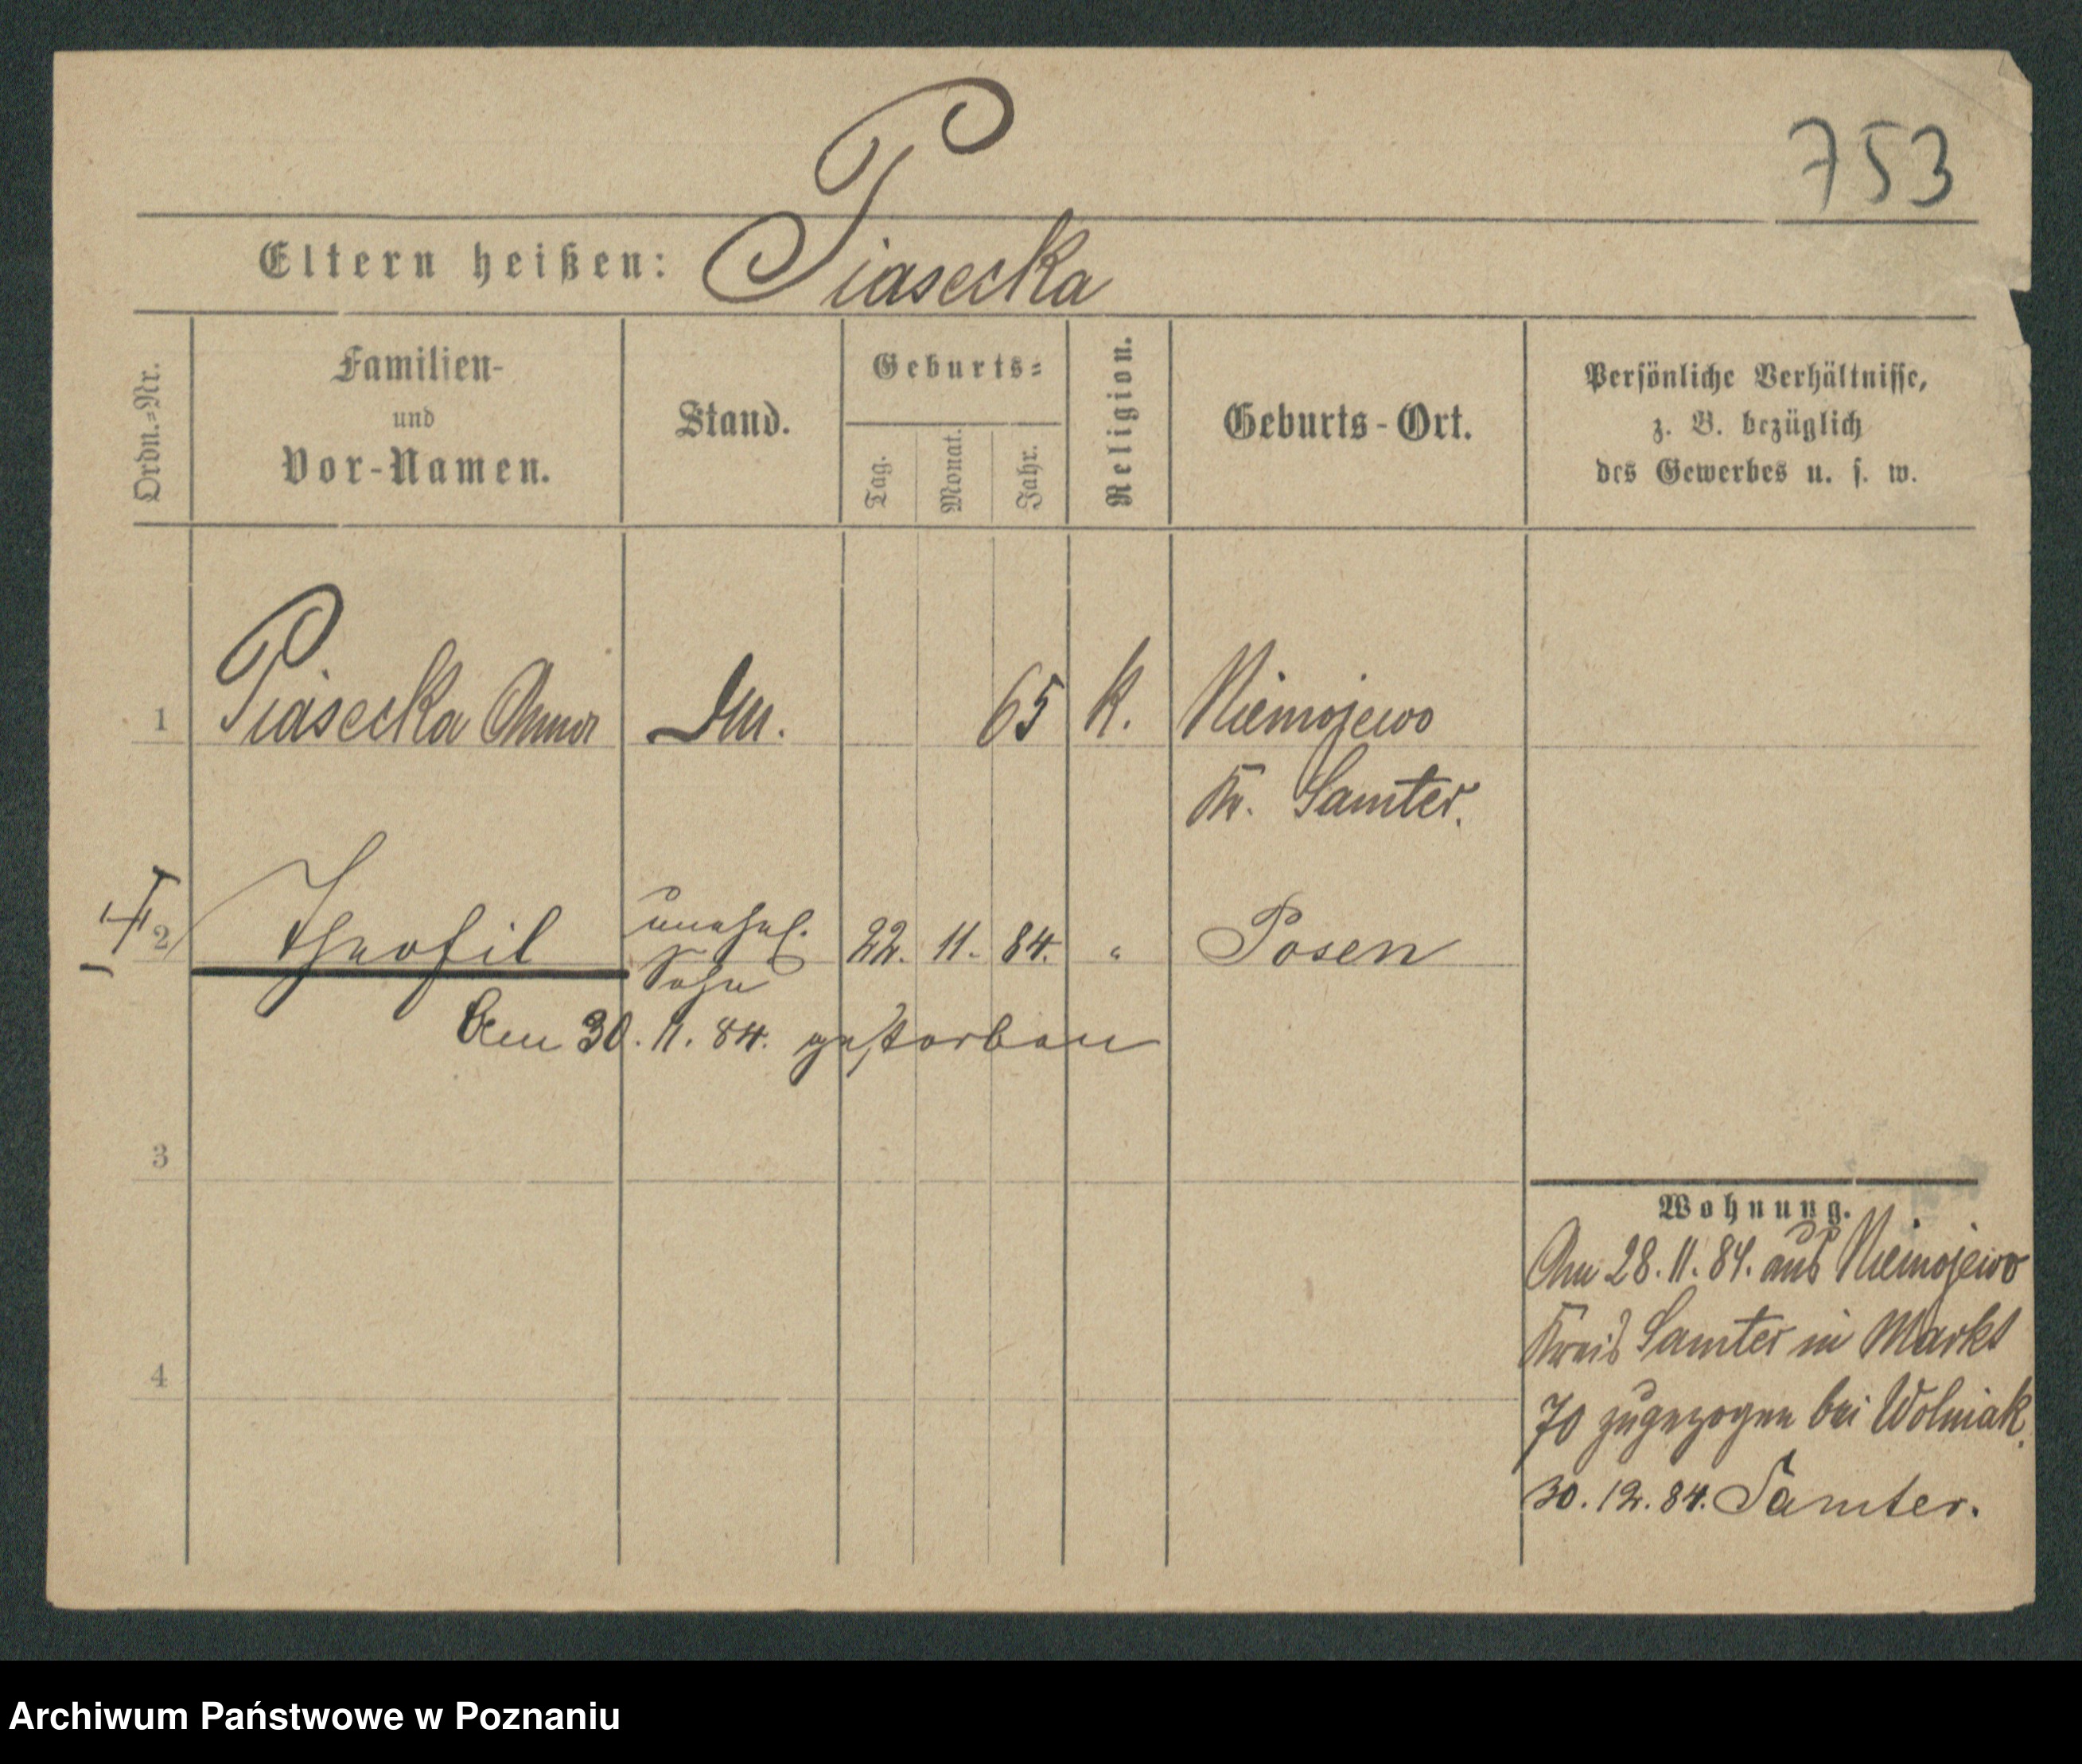 753
Eltern heißen: Piasecka
Ordn.-Nr.
Familien-
und
Vor-Namen.
Stand.
Geburts-
Tag.
Monat.
Jahr.
Religion.
Geburts-Ort.
Persönliche Verhältnisse,
z. B. bezüglich
des Gewerbes u. s. w.
1 Piasecka Anna 65 K. Niemojewo
Kr. Samter.
2 Theofil unehel. 22. 11. 84. " Posen
Sohn
Am 30. 11. 84. gestorben
3
4
Wohnung.
Am 28. 11. 84. aus Niemojewo
Kreis Samter in Markt
70 zugezogen bei Wolniak.
30. 12. 84. Samter.
Archiwum Państwowe w Poznaniu